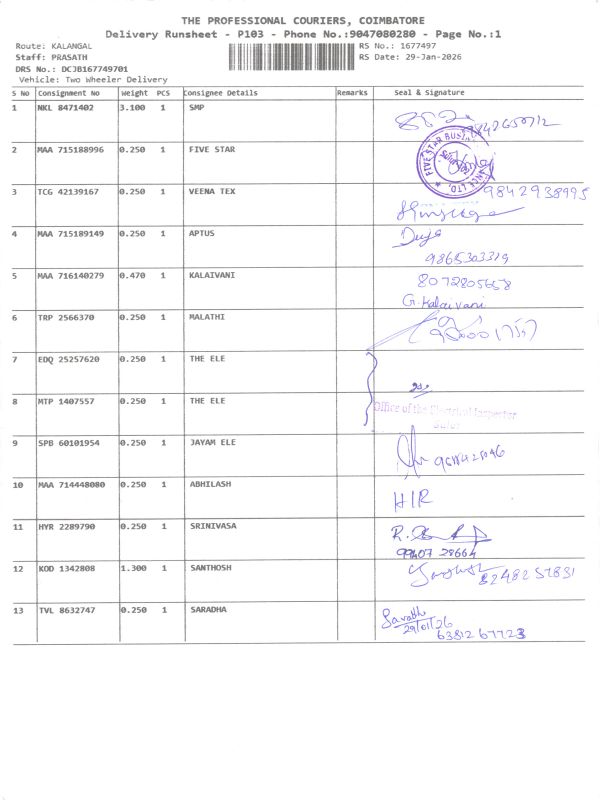 THE PROFESSIONAL COURIERS, COIMBATORE
Delivery Runsheet - P103 - Phone No.:9047080280 - Page No.:1
Route: KALANGAL
RS No.: 1677497
Staff: PRASATH
RS Date: 29-Jan-2026
DRS No.: DCJB167749701
Vehicle: Two Wheeler Delivery
S No Consignment No Weight PCS Consignee Details Remarks Seal & Signature
1 NKL 8471402 3.100 1 SMP
2 MAA 715188996 0.250 1 FIVE STAR
FIVE STAR BUSI
LTD.
3 TCG 42139167 0.250 1 VEENA TEX 9842938995
4 MAA 715189149 0.250 1 APTUS
9865303319
5 MAA 716140279 0.470 1 KALAIVANI 8072805658
G. Kalaivani
6 TRP 2566370 0.250 1 MALATHI
7 EDQ 25257620 0.250 1 THE ELE
8 MTP 1407557 0.250 1 THE ELE
Office of the Electrical Inspector
9 SPB 60101954 0.250 1 JAYAM ELE
10 MAA 714448080 0.250 1 ABHILASH HIR
11 HYR 2289790 0.250 1 SRINIVASA
99407 28664
12 KOD 1342808 1.300 1 SANTHOSH 8248257831
13 TVL 8632747 0.250 1 SARADHA
29/01/26
63812 67723